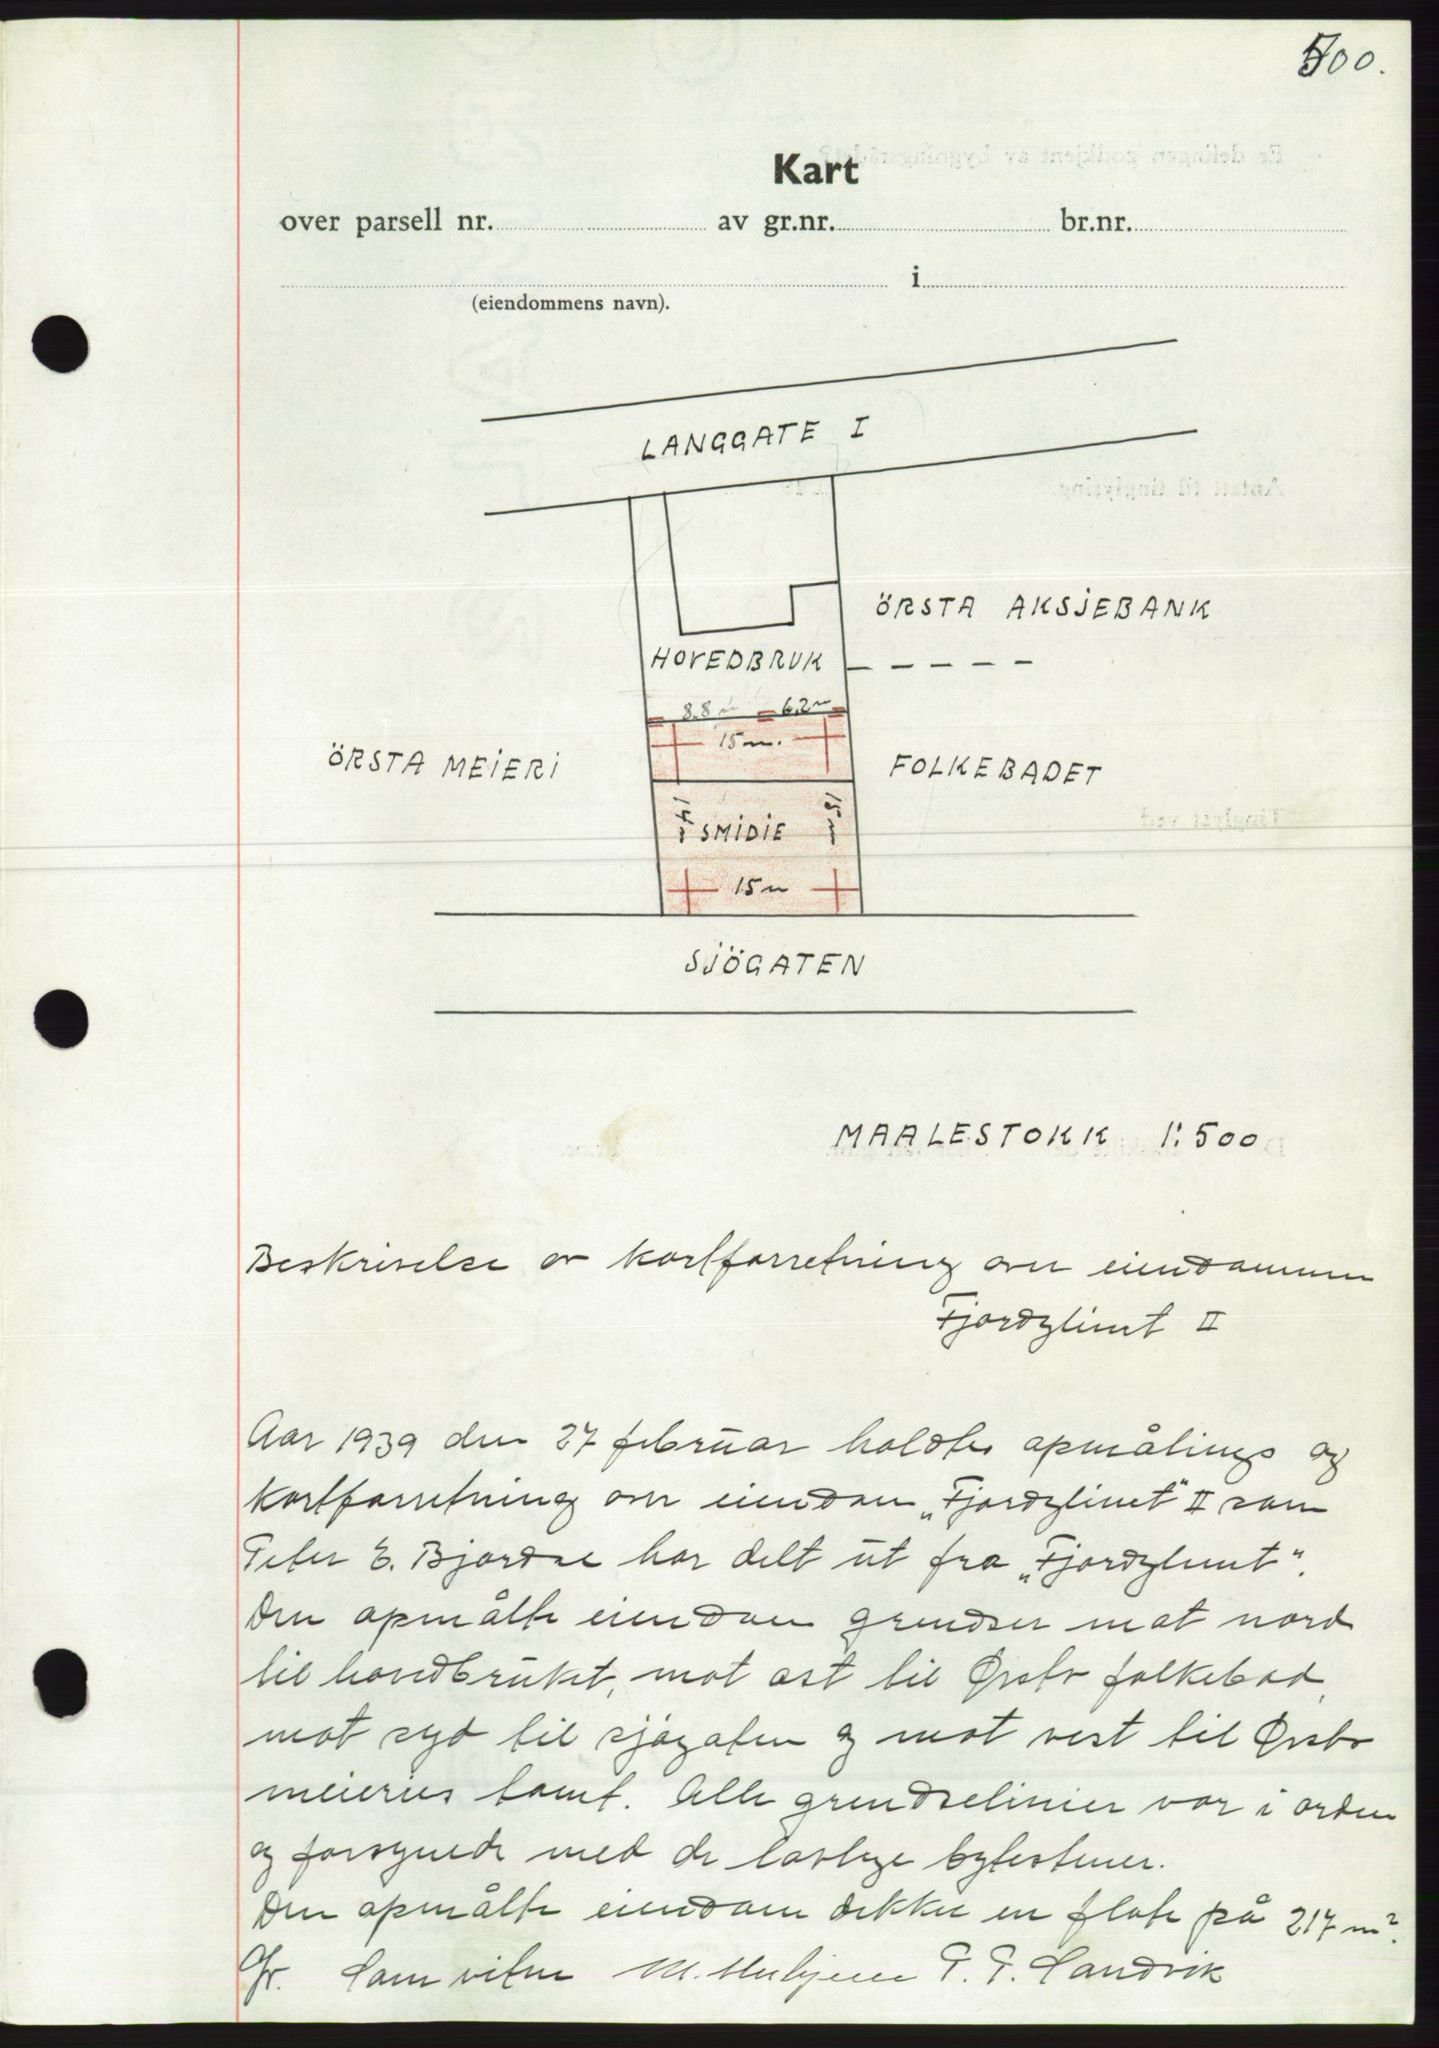 500.
Kart
over parsell nr. av gr.nr. br.nr.
i
(eiendommens navn).
LANGGATE I
ÖRSTA AKSJEBANK
HOVEDBRUK
8.8 m 6.2 m
15 m.
ÖRSTA MEIERI
FOLKEBADET
14 m SMIDIE 15 m
15 m
SJÖGATEN
MAALESTOKK 1:500
Beskrivelse av kartforretning over eiendommen
Fjordglimt II
Aar 1939 den 27 februar holdtes opmålings og
kartforretning over eiendom „Fjordglimt" II som
Peter E. Bjørdal har delt ut fra „Fjordglimt".
Den opmålte eiendom grendser mot nord
til hovedbruket, mot øst til Ørsta folkebad,
mot syd til sjøgaten og mot vest til Ørsta
meieries tomt. Alle grendselinier var i orden
og forsynede med de lovlige bytesteiner.
Den opmålte eiendom dekker en flate på 217 m².
Som vitne P. P. Sandvik